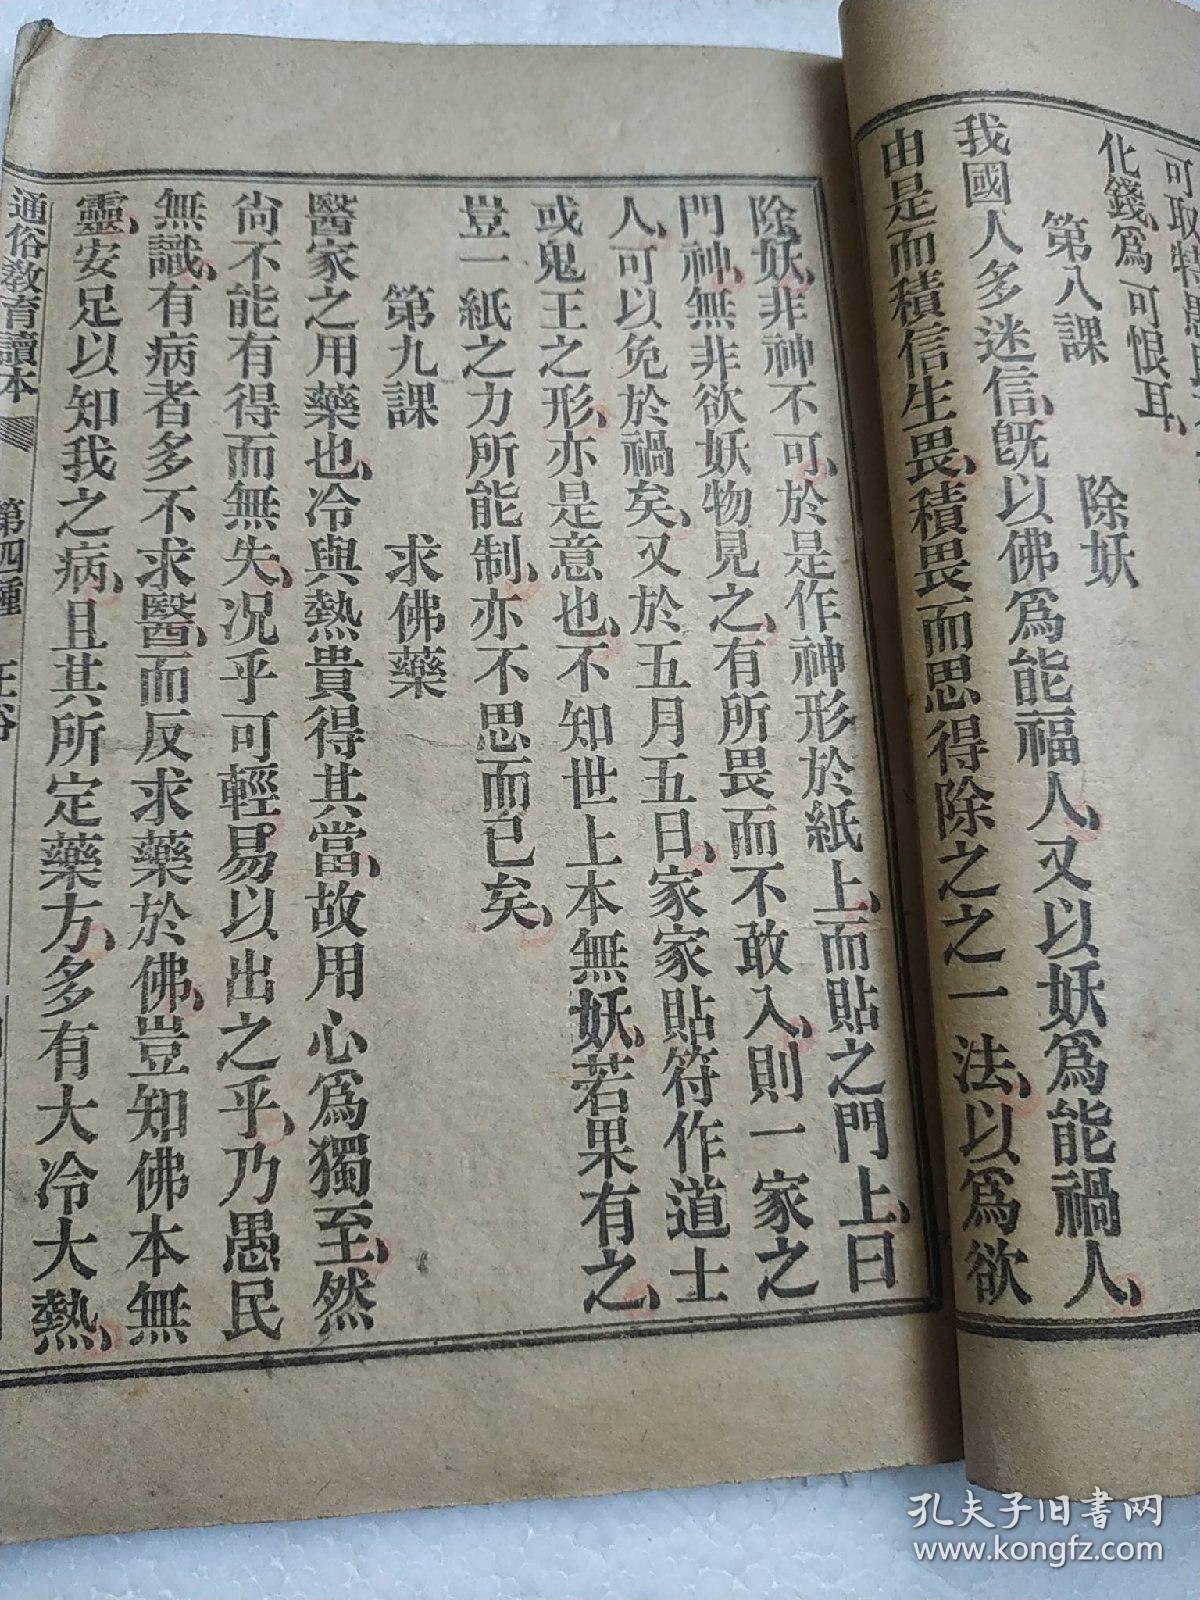 可取
化錢、爲可恨耳、
第八課 除妖
我國人多迷信、旣以佛爲能福人、又以妖爲能禍人、
由是而積信生畏、積畏而思得除之之一法、以爲欲
除妖、非神不可、於是作神形於紙上、而貼之門上、曰
門神、無非欲妖物見之、有所畏而不敢入、則一家之
人、可以免於禍矣、又於五月五日、家家貼符作道士
或鬼王之形、亦是意也、不知世上本無妖、若果有之、
豈一紙之力所能制、亦不思而已矣、
第九課 求佛藥
醫家之用藥也、冷與熱貴得其當、故用心爲獨至、然
尙不能有得而無失、况乎可輕易以出之乎、乃愚民
無識、有病者多不求醫、而反求藥於佛、豈知佛本無
靈、安足以知我之病、且其所定藥方、多有大冷大熱、
通俗敎育讀本 第四種
孔夫子旧书网
www.kongfz.com